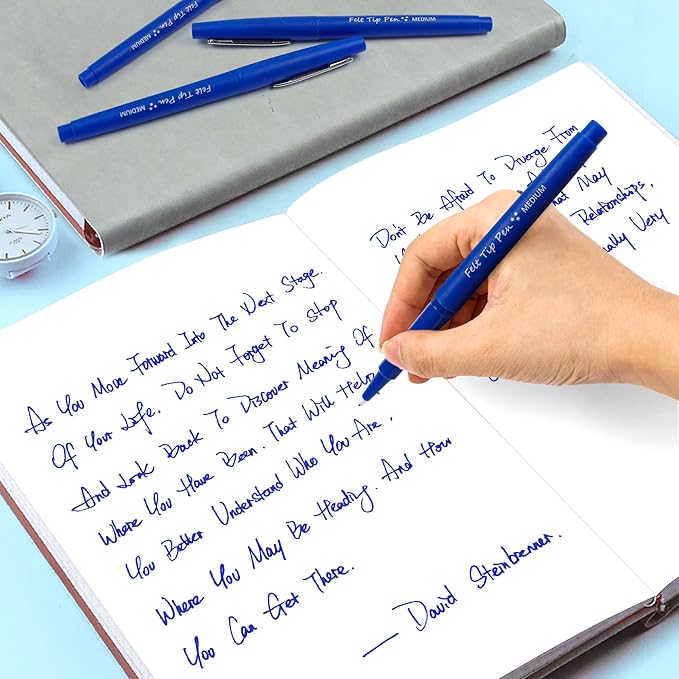 Felt Tip Pen MEDIUM
Felt Tip Pen MEDIUM
Felt Tip Pen MEDIUM
Felt Tip Pen MEDIUM
As You Move Forward Into The Next Stage.
Of Your Life. Do Not Forget To Stop
And Look Back To Discover Meaning Of
Where You Have Been. That Will Help
You Better Understand Who You Are,
Where You May Be Heading. And How
You Can Get There.
— David Steinbrenner.
Don't Be Afraid To Diverge From
That May
Relationships,
Very